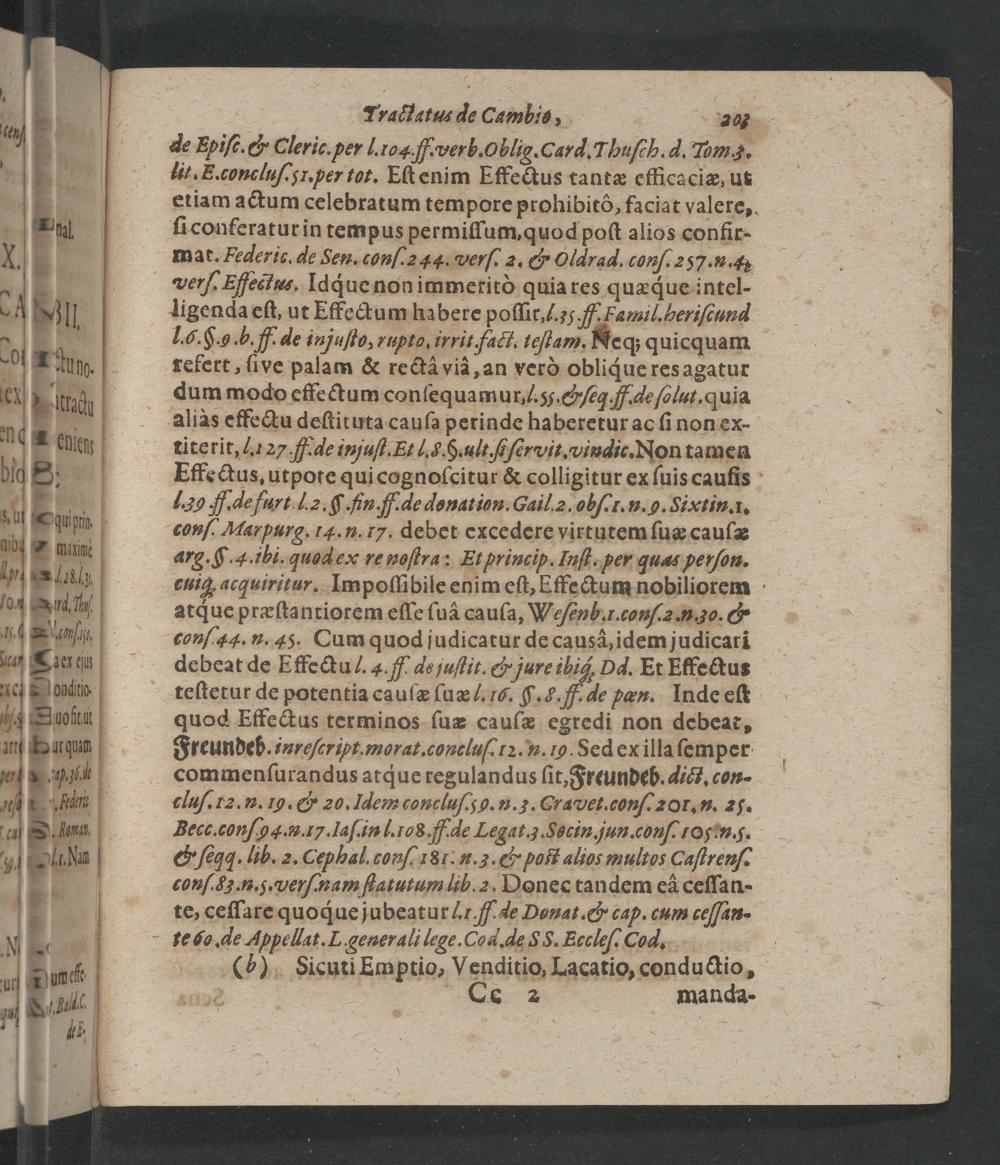 Tractatus de Cambio, 203
de Episc. & Cleric. per l.104.ff.verb.Oblig.Card.Thusch.d. Tom.3.
lit. E.concluſ.51.per tot. Eſt enim Effectus tantæ efficaciæ, ut
etiam actum celebratum tempore prohibitô, faciat valere,
ſi conferatur in tempus permiſſum, quod poſt alios confir-
mat. Federic. de Sen. conſ.244. verſ. 2. & Oldrad. conſ.257.n.4.
verſ. Effectus. Idq́ue non immeritò quia res quæq́ue intel-
ligenda eſt, ut Effectum habere poſſit, l.35.ff.Famil.heriſcund
l.6.§.9.b.ff. de injuſto, rupto, irrit.fact. teſtam. Neq; quicquam
refert, ſive palam & rectâ viâ, an verò obliq́ue res agatur
dum modo effectum conſequamur, l.55.&ſeq.ff.de ſolut. quia
aliàs effectu deſtituta cauſa perinde haberetur ac ſi non ex-
titerit, l.127.ff.de injuſt. Et l.8.§.ult.ſi ſervit.vindic. Non tamen
Effectus, utpote qui cognoſcitur & colligitur ex ſuis cauſis
l.39 ff.de furt l.2.§.fin.ff.de donation. Gail.2. obſ.1.n.9. Sixtin.1.
conſ. Marpurg. 14. n. 17. debet excedere virtutem ſuæ cauſæ
arg.§.4.ibi. quod ex re noſtra: Et princip. Inſt. per quas perſon.
cuiq́, acquiritur. Impoſſibile enim eſt, Effectum nobiliorem
atq́ue præſtantiorem eſſe ſuâ cauſa, Weſenb.1.conſ.2.n.30. &
conſ.44. n. 45. Cum quod judicatur de causâ, idem judicari
debeat de Effectu l. 4. ff. de juſtit. & jure ibiq́, Dd. Et Effectus
teſtetur de potentia cauſæ ſuæ l.16. §.8.ff.de pœn. Inde eſt
quod Effectus terminos ſuæ cauſæ egredi non debeat,
Freundeb. in reſcript.morat.concluſ.12.n.19. Sed ex illa ſemper
commenſurandus atq́ue regulandus ſit, Freundeb. dict. con-
cluſ.12.n.19. & 20. Idem concluſ.59.n.3. Gravet.conſ.201.n. 25.
Becc.conſ.94.n.17.Iaſ.in l.108.ff.de Legat.3.Socin.jun.conſ.105.n.5.
& ſeqq. lib. 2. Cephal. conſ. 181. n.3. & poſt alios multos Caſtrenſ.
conſ.83.n.5.verſ.nam ſtatutum lib.2. Donec tandem eâ ceſſan-
te, ceſſare quoq́ue jubeatur l.1.ff.de Donat. & cap. cum ceſſan-
te 60.de Appellat. L.generali lege.Cod.de SS. Eccleſ. Cod.
(b) Sicuti Emptio, Venditio, Lacatio, conductio,
Cc 2 manda-